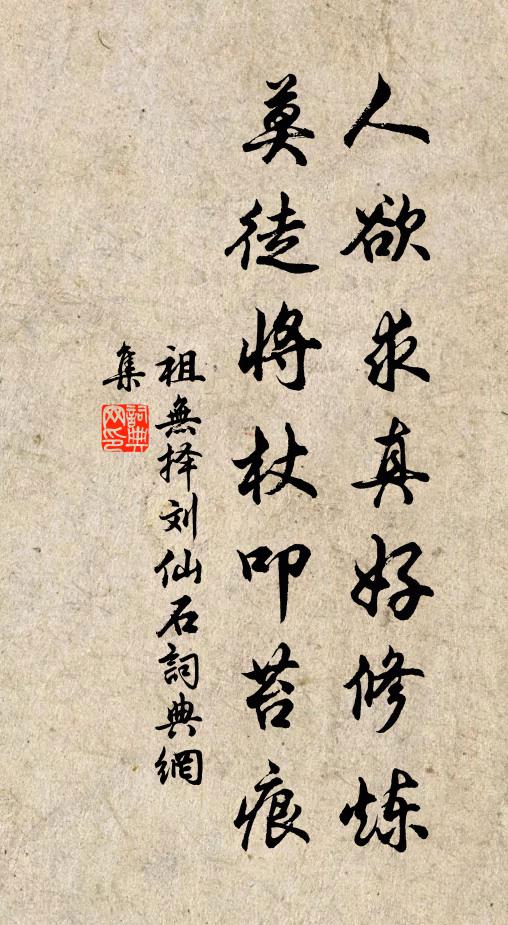 人欲求真好修炼
莫徒将杖叩苔痕
祖無择刘仙石詞典網
集
詞典網印